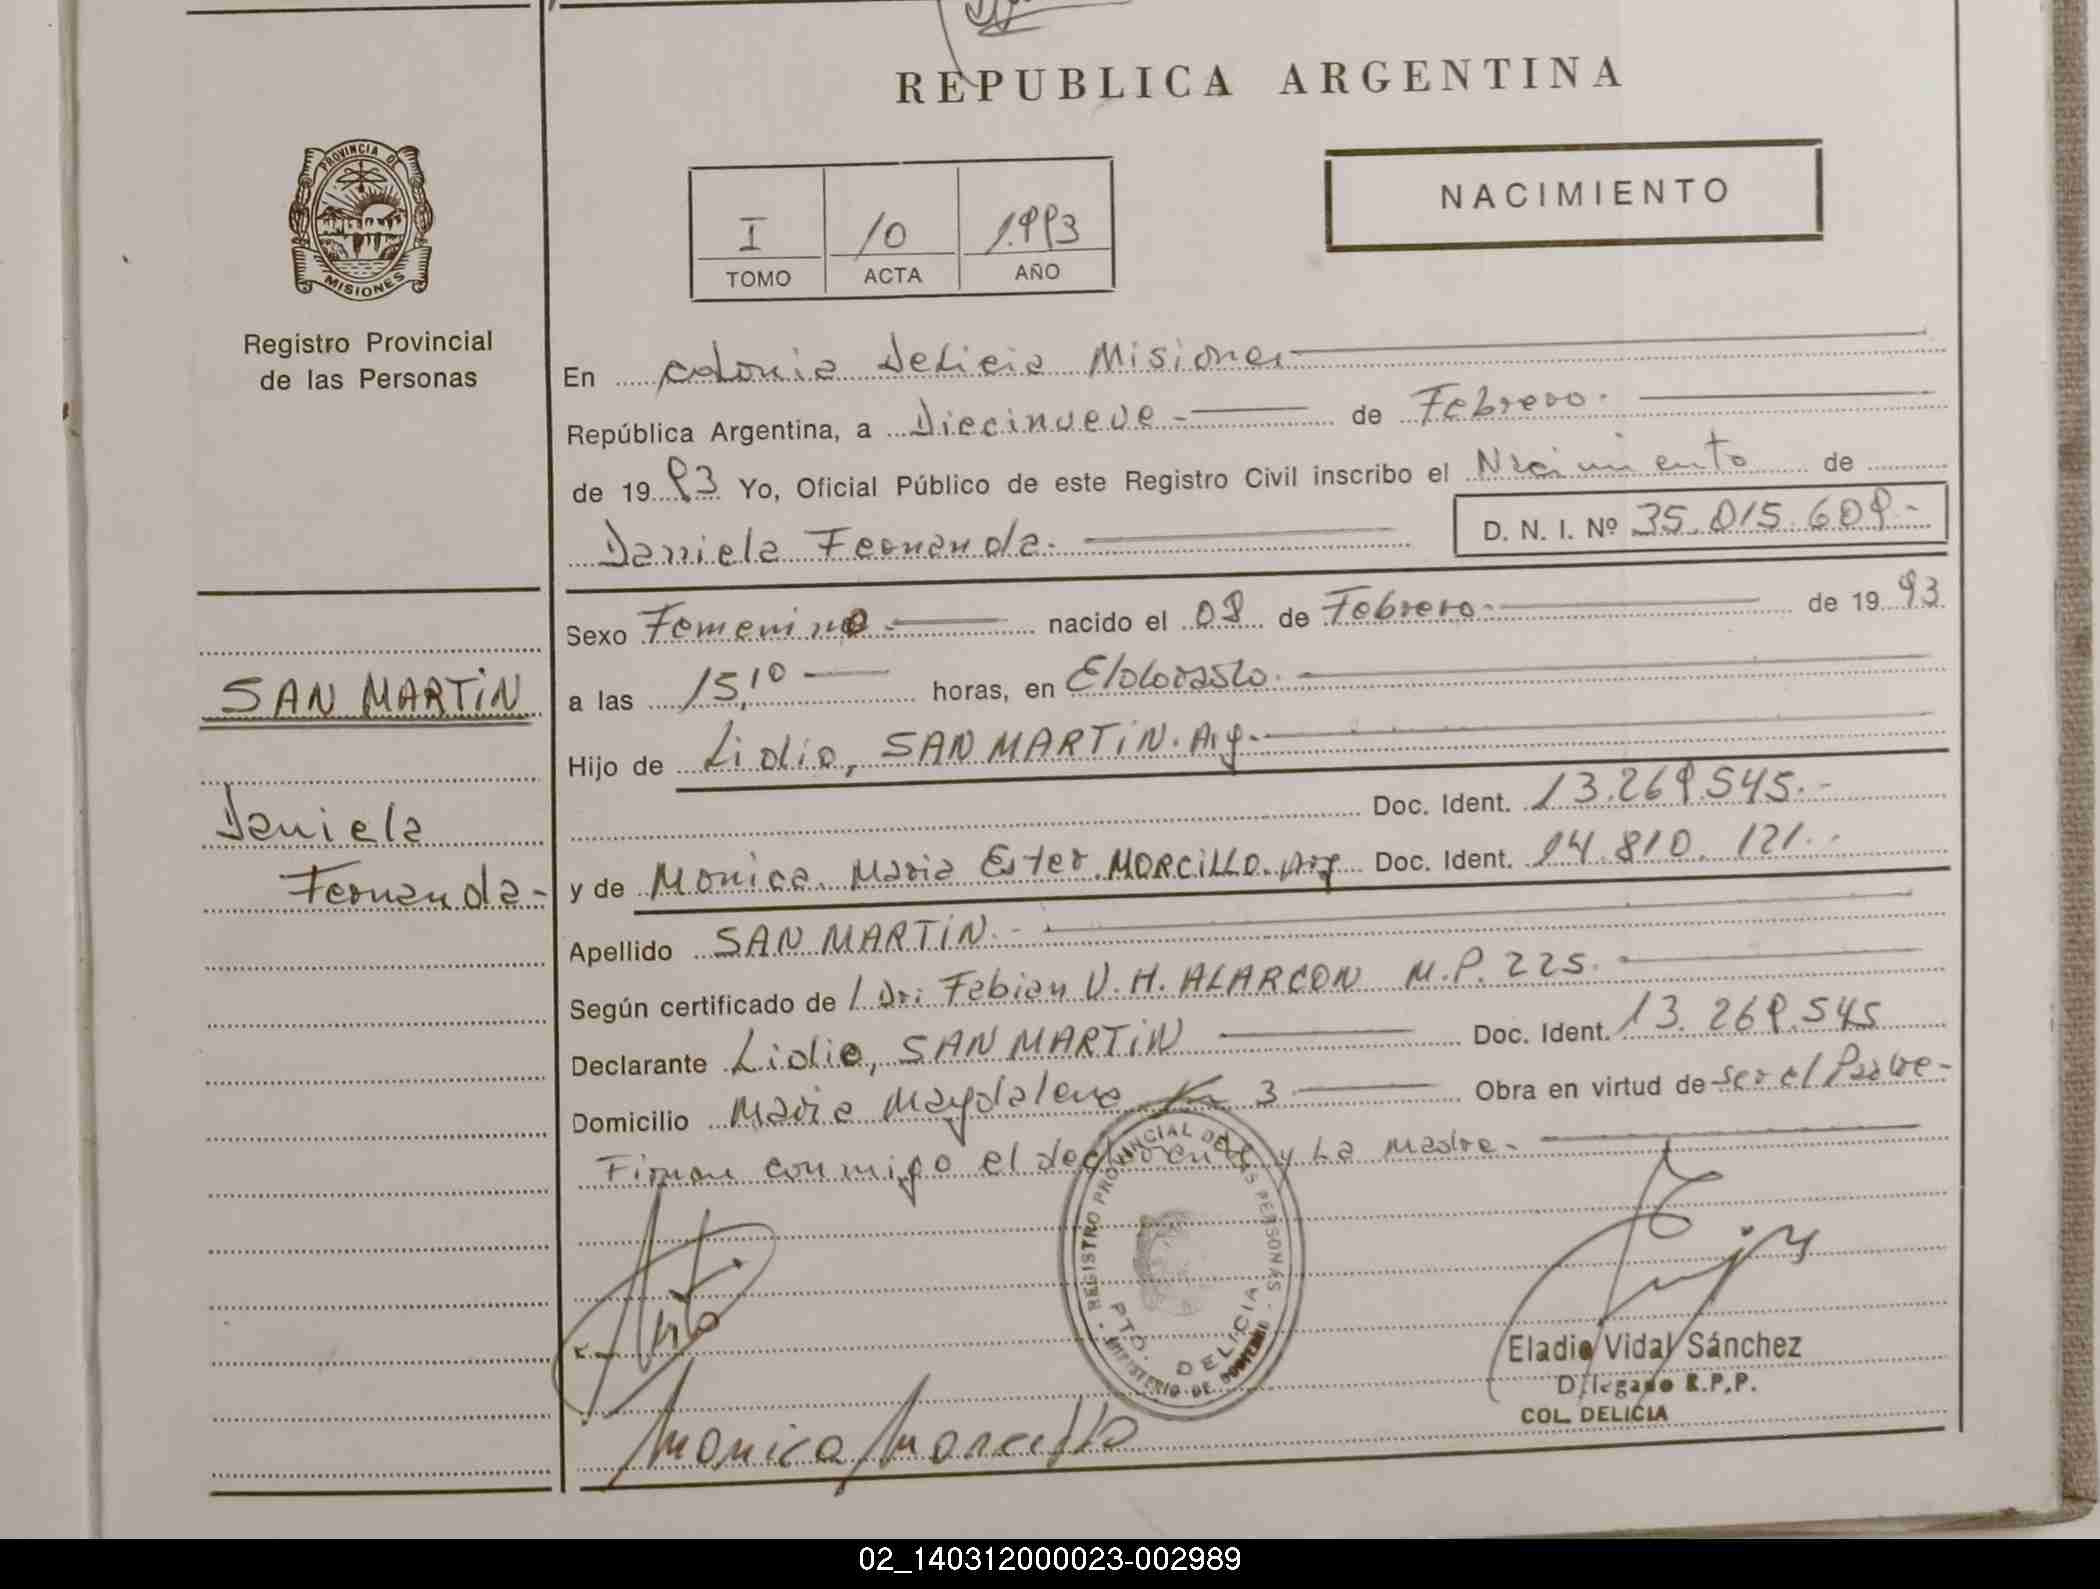 REPUBLICA ARGENTINA
PROVINCIA DE
MISIONES
Registro Provincial
de las Personas
NACIMIENTO
I 10 1.993
TOMO ACTA AÑO
En colonia Delicia Misiones
República Argentina, a Diecinueve.- de Febrero.
de 1993 Yo, Oficial Público de este Registro Civil inscribo el Nacimiento de
Daniela Fernanda. D. N. I. Nº 35.015.609.-
Sexo Femenino.- nacido el 09 de Febrero.- de 1993.
SAN MARTiN
a las 15,10 horas, en Eldorado.
Hijo de Lidio, SAN MARTiN. Arg.-
Doc. Ident. 13.269.545.-
Daniela
Fernanda-
y de Monica Maria Ester MORCiLLO. Arg Doc. Ident. 14.810.121.-
Apellido SAN MARTiN.-
Según certificado de / Dr: Fabian V. H. ALARCON M.P. 225.
Declarante Lidio, SAN MARTiN Doc. Ident. 13.269.545
Domicilio Maria Magdalena Km 3 Obra en virtud de ser el Padre-
Firman conmigo el declarante y La madre.-
REGISTRO PROVINCIAL DE LAS PERSONAS
PTO. DELICIA
MINISTERIO DE GOBIERNO
Eladio Vidal Sánchez
Delegado R.P.P.
COL. DELICIA
Monica Morcillo
02_140312000023-002989